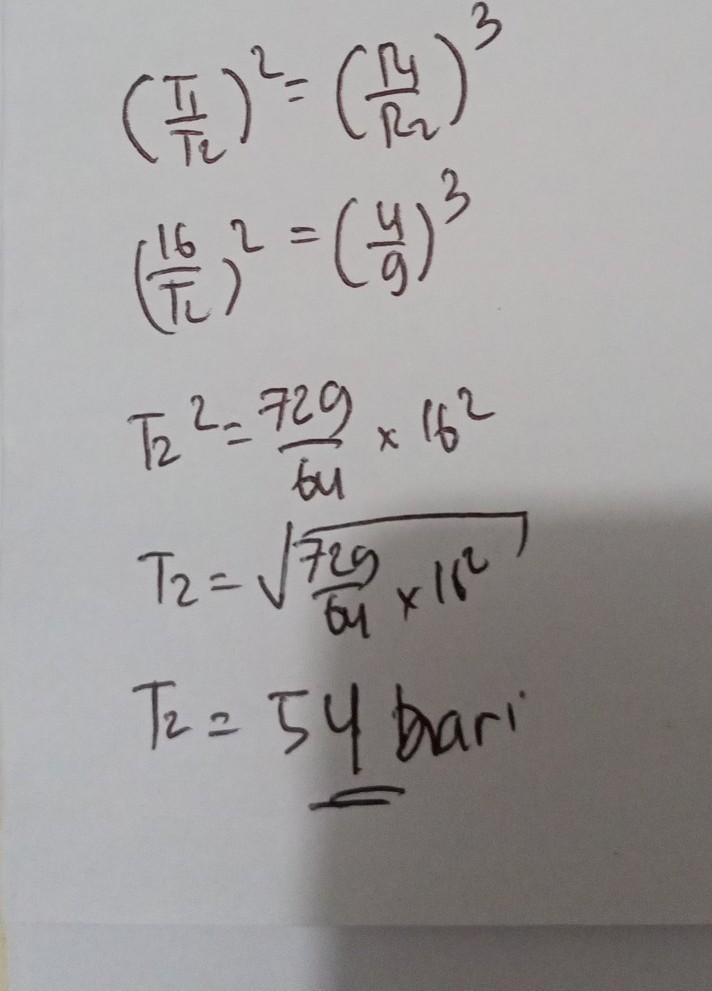 (T1/T2)² = (R1/R2)³
(16/T2)² = (4/9)³
T2² = 729/64 × 16²
T2 = √(729/64 × 16²)
T2 = 54 hari